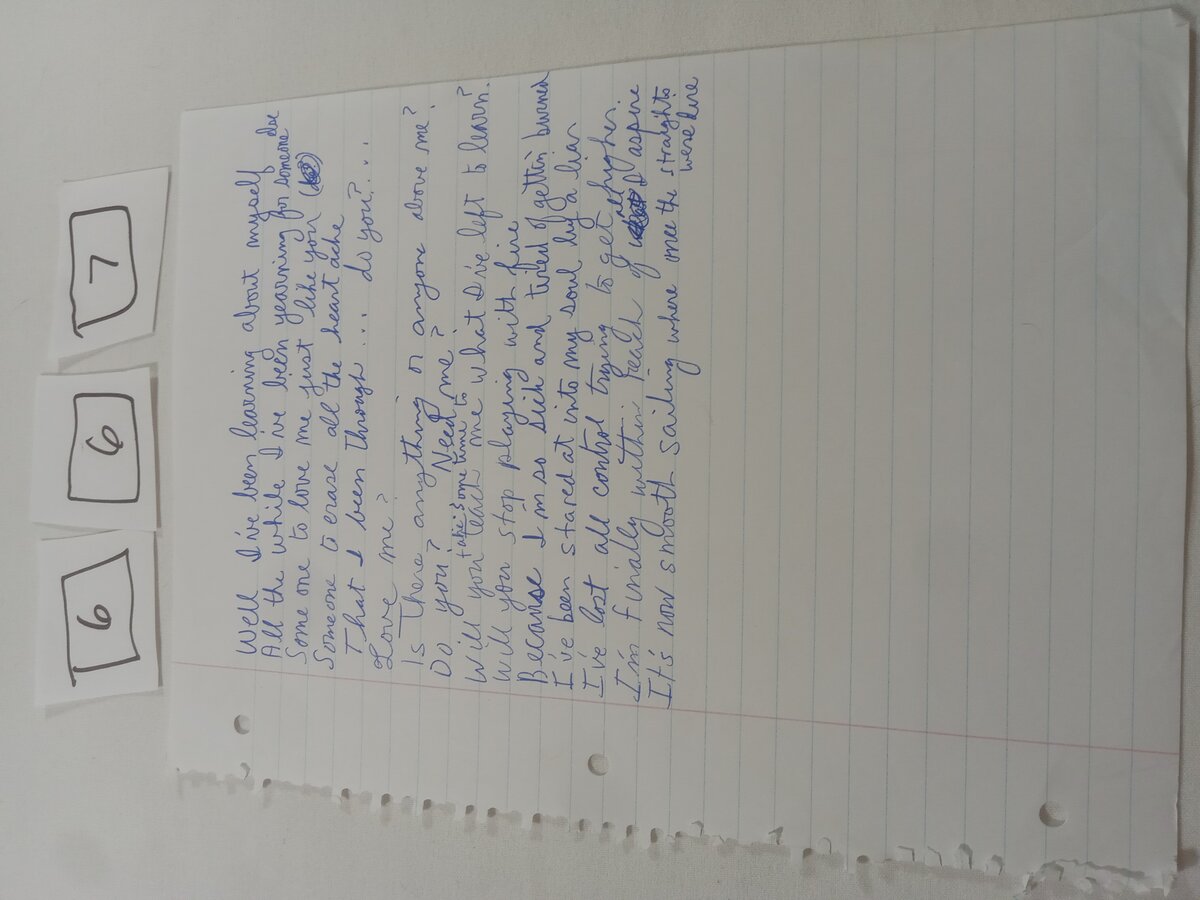 6 6 7
Well I've been learning about myself
All the while I've been yearning for someone else
Some one to love me just like you
Someone to erase all the heart ache
That I been through.... do you?....
Love me?
Is There anything or anyone above me?
Do you? Need me?
take some time to
Will you teach me what I've left to learn?
Will you stop playing with fire
Because I'm so sick and tired of gettin burned
I've been stared at into my soul by a liar
I've lost all control trying to get higher
I'm finally within reach of all I aspire
It's now smooth sailing where once the straights
were dire